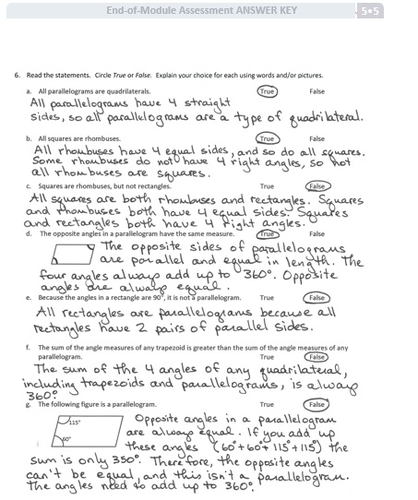 End-of-Module Assessment ANSWER KEY
5•5
6. Read the statements. Circle True or False. Explain your choice for each using words and/or pictures.
a. All parallelograms are quadrilaterals. True False
All parallelograms have 4 straight
sides, so all parallelograms are a type of quadrilateral.
b. All squares are rhombuses. True False
All rhombuses have 4 equal sides, and so do all squares.
Some rhombuses do not have 4 right angles, so not
all rhombuses are squares.
c. Squares are rhombuses, but not rectangles. True False
All squares are both rhombuses and rectangles. Squares
and rhombuses both have 4 equal sides. Squares
and rectangles both have 4 right angles.
d. The opposite angles in a parallelogram have the same measure. True False
The opposite sides of parallelograms
are parallel and equal in length. The
four angles always add up to 360°. Opposite
angles are always equal.
e. Because the angles in a rectangle are 90°, it is not a parallelogram. True False
All rectangles are parallelograms because all
rectangles have 2 pairs of parallel sides.
f. The sum of the angle measures of any trapezoid is greater than the sum of the angle measures of any
parallelogram. True False
The sum of the 4 angles of any quadrilateral,
including trapezoids and parallelograms, is always
360°
g. The following figure is a parallelogram. True False
115°
60°
Opposite angles in a parallelogram
are always equal. If you add up
these angles (60°+60°+115°+115°) the
sum is only 350°. Therefore, the opposite angles
can't be equal, and this isn't a parallelogram.
The angles need to add up to 360°.